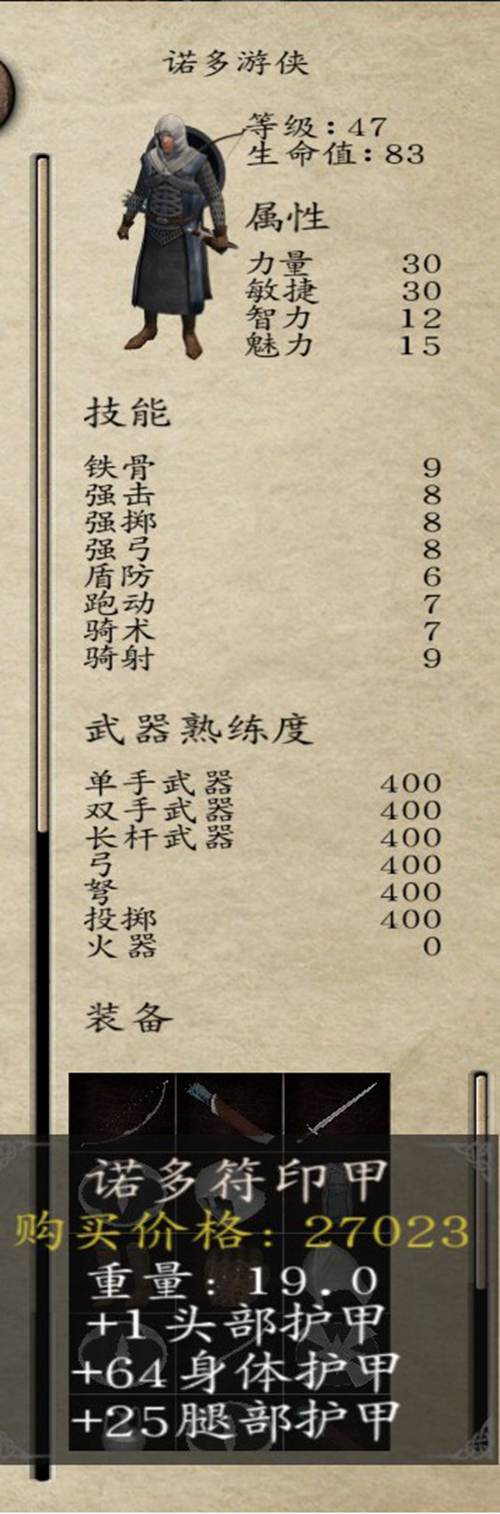 诺多游侠
等级：47
生命值：83
属性
力量 30
敏捷 30
智力 12
魅力 15
技能
铁骨 9
强击 8
强掷 8
强弓 8
盾防 6
跑动 7
骑术 7
骑射 9
武器熟练度
单手武器 400
双手武器 400
长杆武器 400
弓 400
弩 400
投掷 400
火器 0
装备
诺多符印甲
购买价格：27023
重量：19.0
+1头部护甲
+64身体护甲
+25腿部护甲